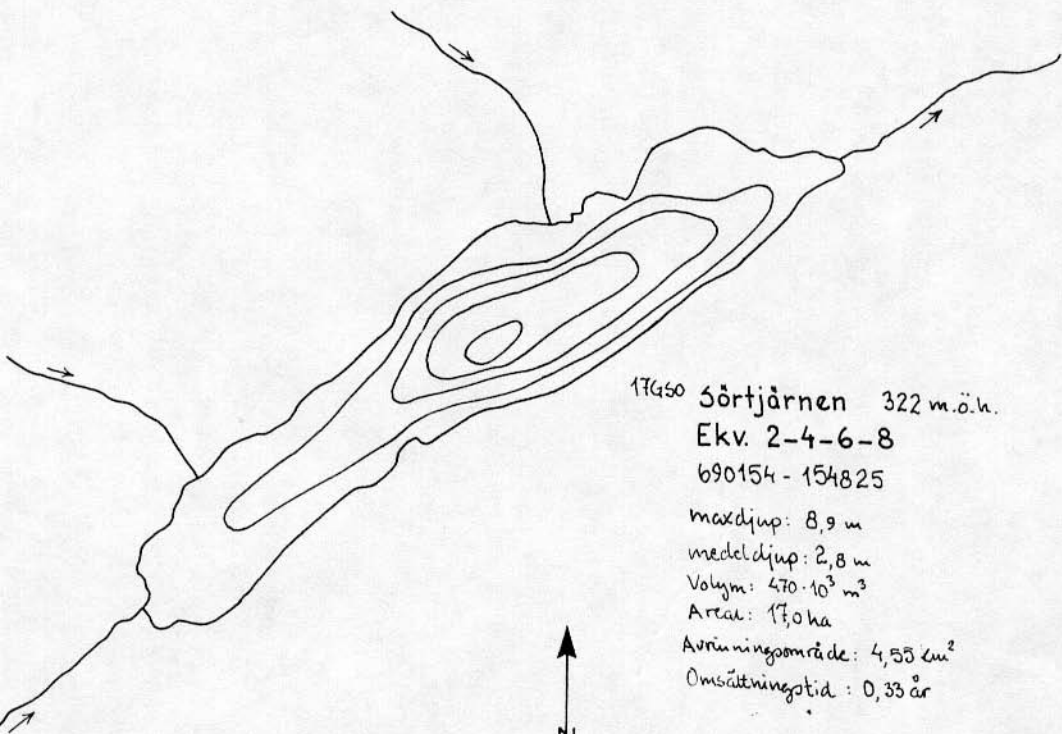 17GSO Sörtjärnen 322 m.ö.h.
Ekv. 2-4-6-8
690154 - 154825
maxdjup: 8,9 m
medeldjup: 2,8 m
Volym: 470·10³ m³
Areal: 17,0 ha
Avrinningsområde: 4,55 km²
Omsättningstid: 0,33 år
N